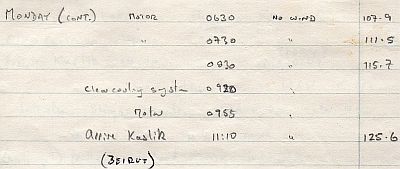 MONDAY (CONT.) MOTOR 0630 NO WIND 107.9
" 0730 " 111.5
0830 " 115.7
Clear cooling system 0920 "
Motor 0955 "
Arrive Kaslik 11:10 " 125.6
(BEIRUT)